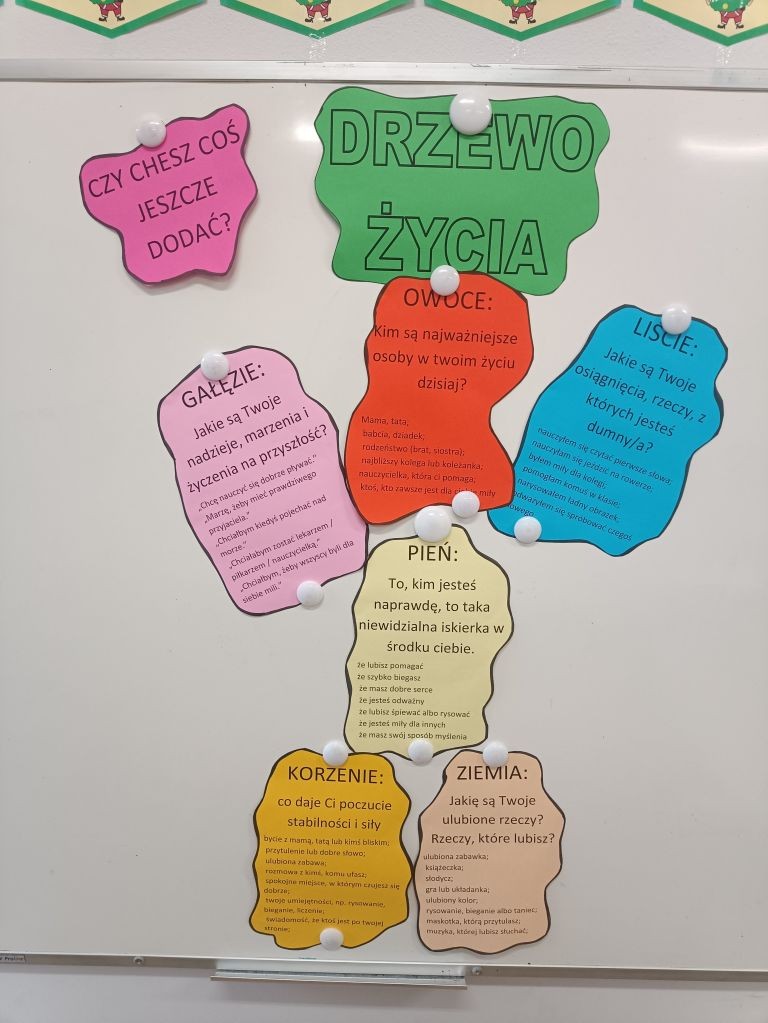 CZY CHESZ COŚ
JESZCZE
DODAĆ?
DRZEWO
ŻYCIA
OWOCE:
Kim są najważniejsze
osoby w twoim życiu
dzisiaj?
Mama, tata;
babcia, dziadek;
rodzeństwo (brat, siostra);
najbliższy kolega lub koleżanka;
nauczycielka, która ci pomaga;
ktoś, kto zawsze jest dla miły
LIŚCIE:
Jakie są Twoje
osiągnięcia, rzeczy, z
których jesteś
dumny/a?
nauczyłem się czytać pierwsze słowa;
nauczyłam się jeździć na rowerze;
byłem miły dla kolegi;
pomogłam komuś w klasie;
narysowałem ładny obrazek;
odważyłem się spróbować czegoś
nowego
GAŁĘZIE:
Jakie są Twoje
nadzieje, marzenia i
życzenia na przyszłość?
„Chcę nauczyć się dobrze pływać.”
„Marzę, żeby mieć prawdziwego
przyjaciela.”
„Chciałbym kiedyś pojechać nad
morze.”
„Chciałabym zostać lekarzem /
piłkarzem / nauczycielką.”
„Chciałbym, żeby wszyscy byli dla
siebie mili.”
PIEŃ:
To, kim jesteś
naprawdę, to taka
niewidzialna iskierka w
środku ciebie.
że lubisz pomagać
że szybko biegasz
że masz dobre serce
że jesteś odważny
że lubisz śpiewać albo rysować
że jesteś miły dla innych
że masz swój sposób myślenia
KORZENIE:
co daje Ci poczucie
stabilności i siły
bycie z mamą, tatą lub kimś bliskim;
przytulenie lub dobre słowo;
ulubiona zabawa;
rozmowa z kimś, komu ufasz;
spokojne miejsce, w którym czujesz się
dobrze;
twoje umiejętności, np. rysowanie,
bieganie, liczenie;
świadomość, że ktoś jest po twojej
stronie;
ZIEMIA:
Jakię są Twoje
ulubione rzeczy?
Rzeczy, które lubisz?
ulubiona zabawka;
książeczka;
słodycz;
gra lub układanka;
ulubiony kolor;
rysowanie, bieganie albo taniec;
maskotka, którą przytulasz;
muzyka, której lubisz słuchać;